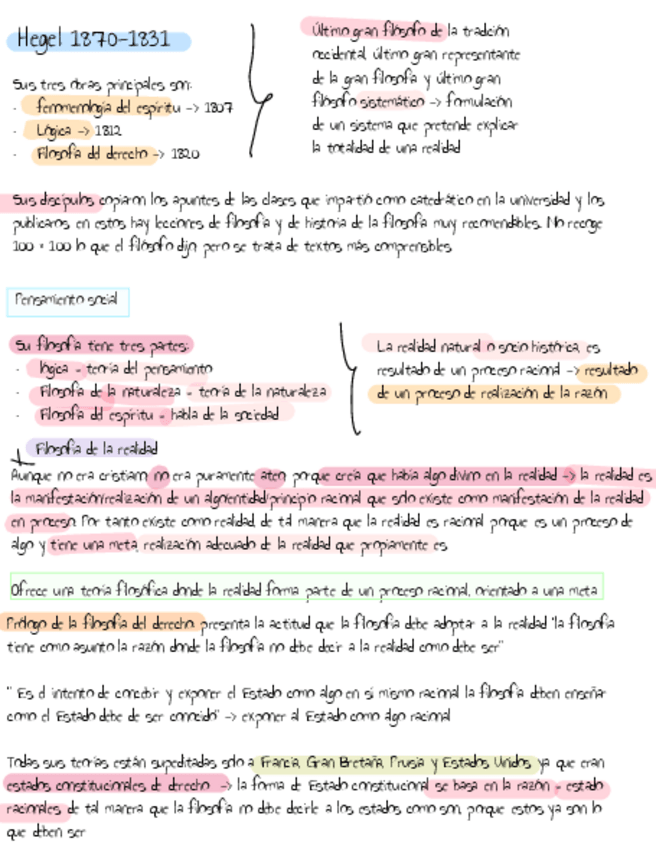 Hegel 1870-1831
Sus tres obras principales son:
· fenomenología del espíritu -> 1807
· Lógica -> 1812
· Filosofía del derecho -> 1820
Último gran filósofo de la tradición
occidental último gran representante
de la gran filosofía y último gran
filósofo sistemático -> formulación
de un sistema que pretende explicar
la totalidad de una realidad
Sus discípulos copiaron los apuntes de las clases que impartió como catedrático en la universidad y los
publicaros en estos hay lecciones de filosofía y de historia de la filosofía muy recomendables. No recoge
100 × 100 lo que el filósofo dijo pero se trata de textos más comprensibles
Pensamiento social
Su filosofía tiene tres partes:
· lógica - teoría del pensamiento
· Filosofía de la naturaleza - teoría de la naturaleza
· Filosofía del espíritu - habla de la sociedad
La realidad natural o socio histórica, es
resultado de un proceso racional -> resultado
de un proceso de realización de la razón
Filosofía de la realidad
Aunque no era cristiano no era puramente ateo porque creía que había algo divino en la realidad -> la realidad es
la manifestación/realización de un algo/entidad/principio racional que solo existe como manifestación de la realidad
en proceso. Por tanto existe como realidad de tal manera que la realidad es racional porque es un proceso de
algo y tiene una meta, realización adecuado de la realidad que propiamente es
Ofrece una teoría filosófica donde la realidad forma parte de un proceso racional, orientado a una meta
Prólogo de la filosofía del derecho: presenta la actitud que la filosofía debe adoptar a la realidad "la filosofía
tiene como asunto la razón donde la filosofía no debe decir a la realidad como debe ser"
" Es el intento de concebir y exponer el Estado como algo en si mismo racional la filosofía deben enseñar
como el Estado debe de ser conocido" -> exponer al Estado como algo racional
Todas sus teorías están supeditadas solo a Francia, Gran Bretaña, Prusia y Estados Unidos ya que eran
estados constitucionales de derecho -> la forma de Estado constitucional se basa en la razón - estado
racionales de tal manera que la filosofía no debe decirle a los estados como son, porque estos ya son lo
que deben ser